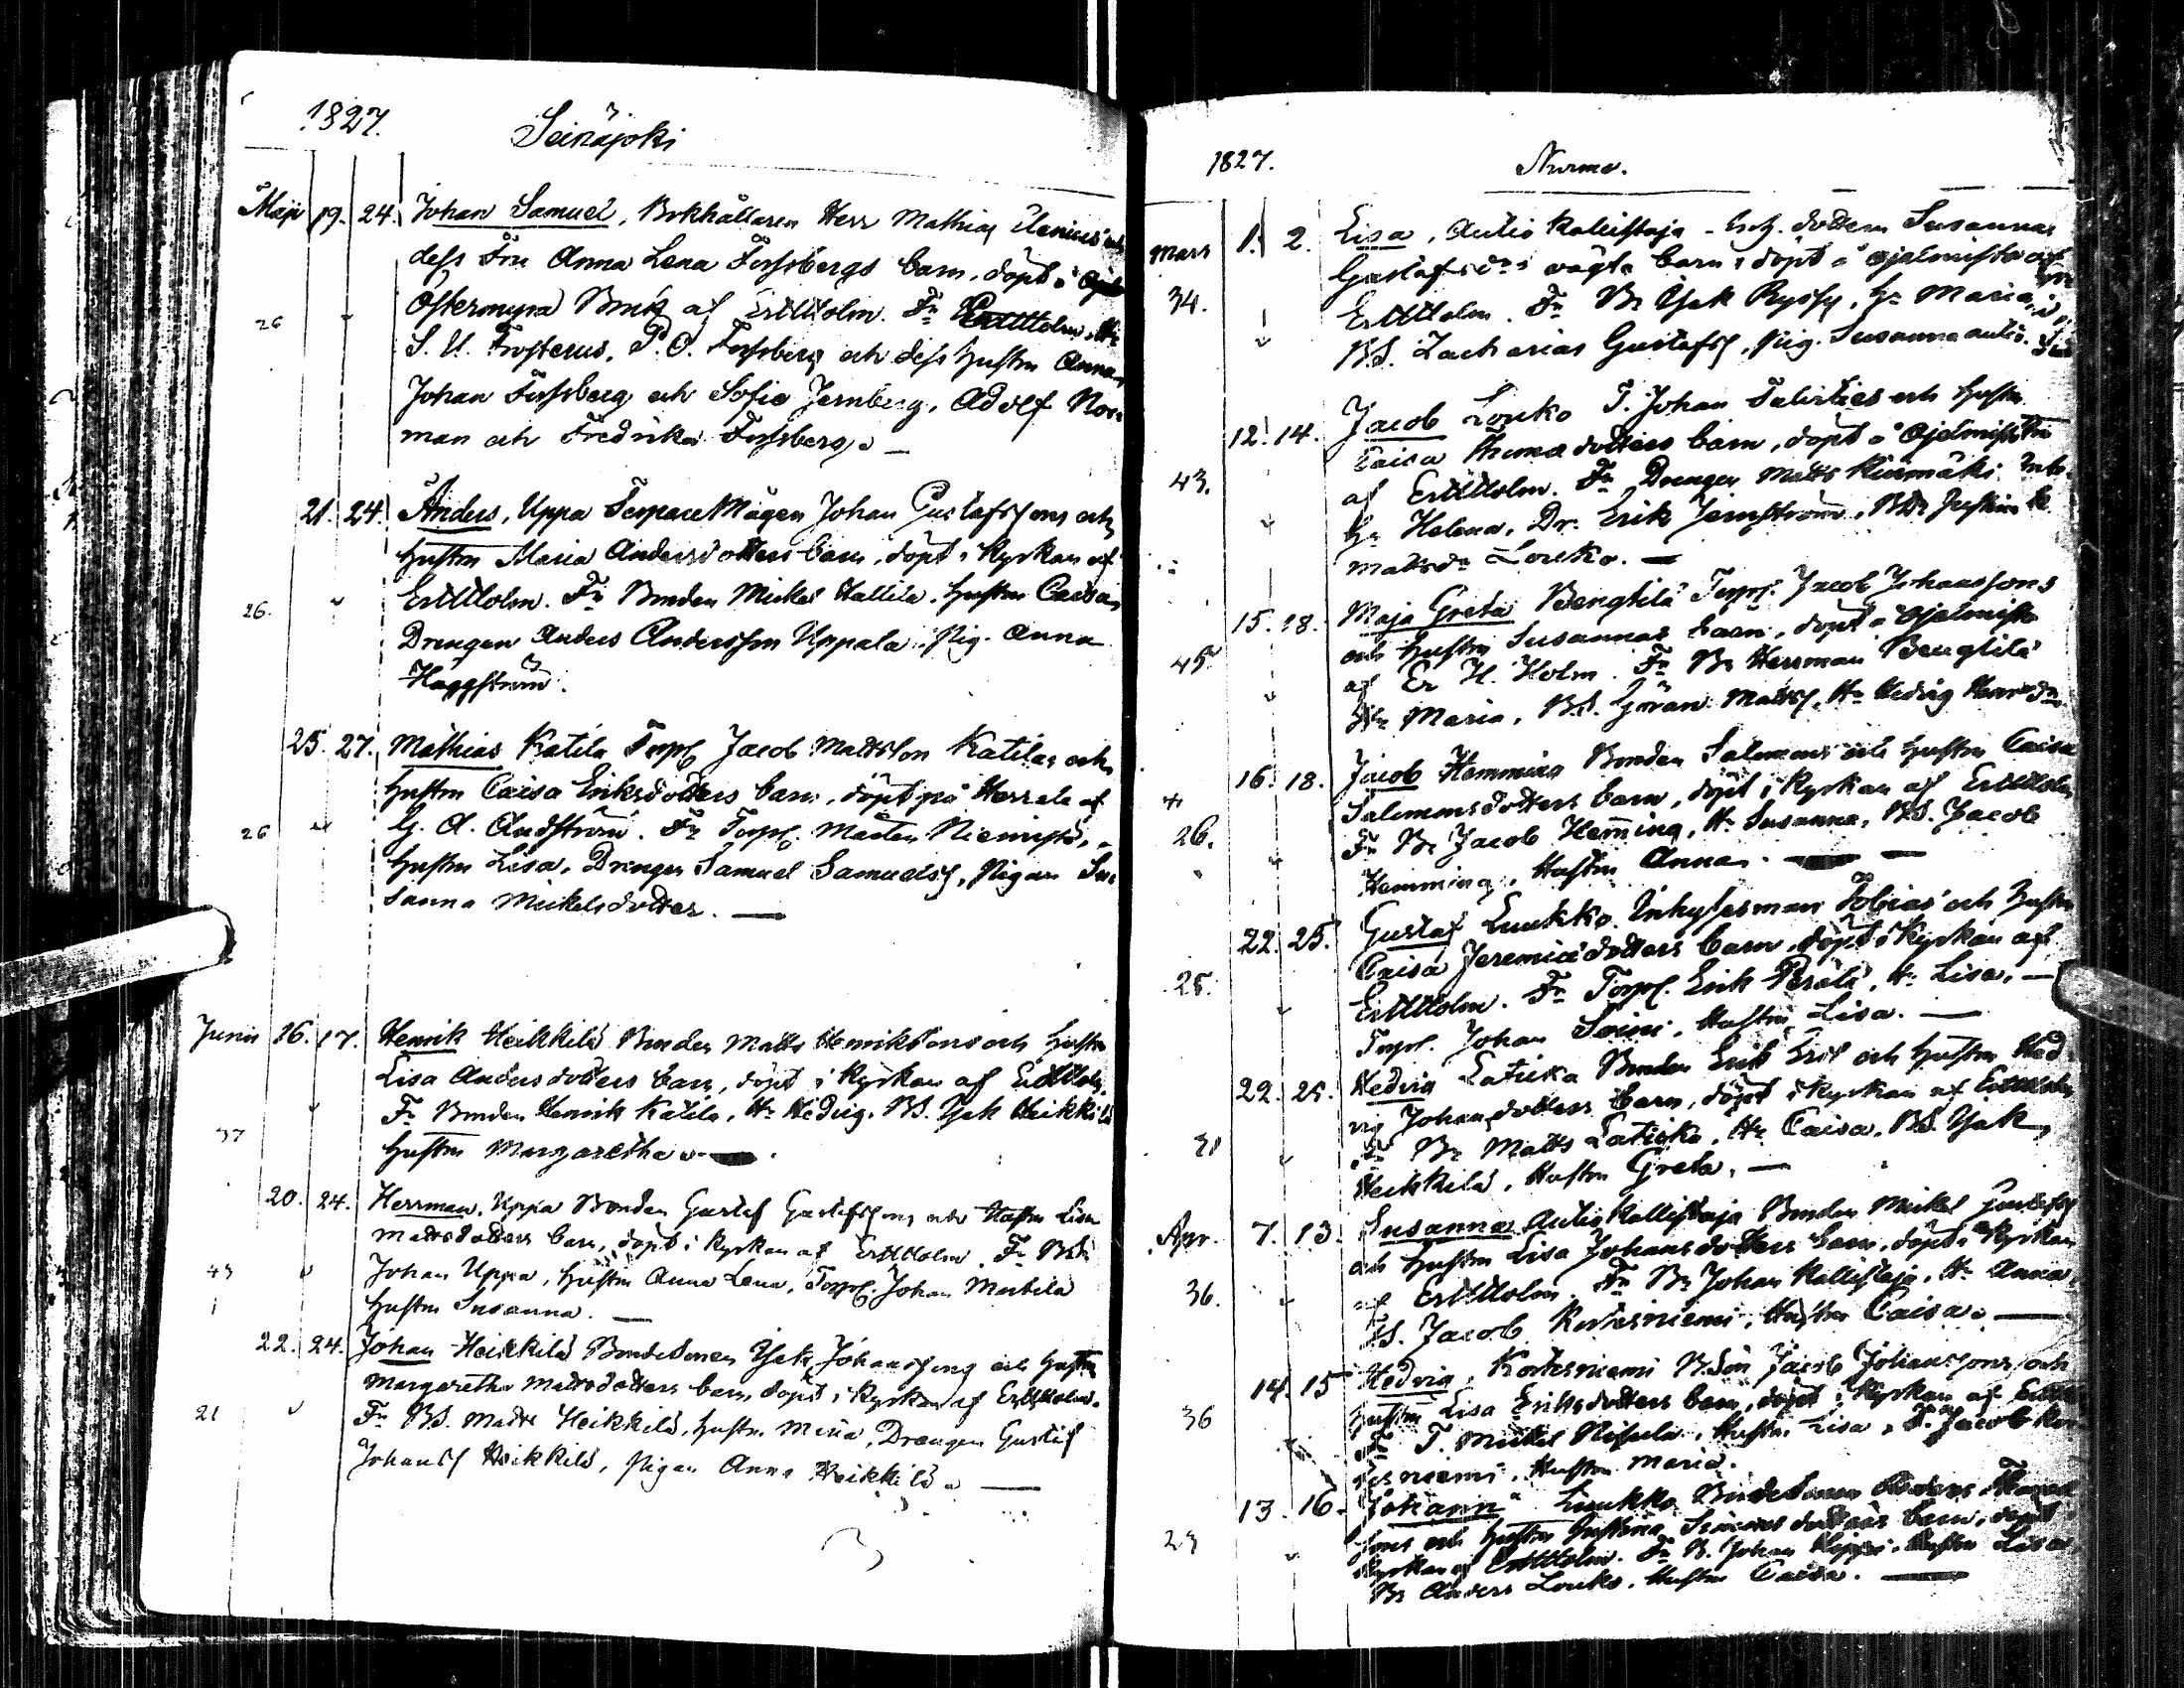 1827.
Seinäjoki
Maji 19. 24. Johan Samuel, Bokhållaren Herr Mathias Ilenius och
dess Fru Anna Lena Forssbergs barn, döpt å
26 Östermyra Bruk af ErHHolm. Fr
S. U. Frosterus, P. O. Forssberg och dess hustru Anna,
Johan Forssberg och Sofie Jernberg, Adolf Nor-
man och Fredrika Forssberg. —
21. 24. Anders, Uppa Torpare Mågen Johan Gustafssons och
hustru Maria Andersdotters barn, döpt i Kyrkan af
26. ErHHolm. Fr Bonden Mickel Hallila, hustru Caisa,
Drengen Anders Andersson Uppala, Pig. Anna
Häggström.
25. 27. Mathias Katila Torp. Jacob Mattsson Katilas och
hustru Caisa Eriksdotters barn, döpt på Herrala af
26 G. A. Andström. Fr Torp. Mårten Niemistö,
hustru Lisa, Drengen Samuel Samuelss, Pigan Su-
sanna Mickelsdotter. —
Junii 16. 17. Henrik Heikkilä Bonden Matts Henrikssons och hustru
Lisa Andersdotters barn, döpt i Kyrkan af ErHHolm.
37 Fr Bonden Henrik Katila, H. Hedvig. BS. Isak Heikkilä
hustru Margaretha. —
20. 24. Herrman, Uppa Bonden Gustaf Gustafssons och Hustru Lisa
Mattsdotters barn, döpt i Kyrkan af ErHHolm. Fr Bd.
43 Johan Uppa, hustru Anna Lena, Torp. Johan Marttila
hustru Susanna. —
22. 24. Johan Heikkilä Bondesonen Isak Johanssons och hustru
Margaretha Mattsdotters barn döpt i Kyrkan af ErHHolm.
21 Fr BS. Matts Heikkilä, hustru Maria, Drengen Gustaf
Johanss Heikkilä, Pigan Anna Heikkilä. —
1827. Nurmo.
Mars 1. 2. Lisa, Autio Kallistaja dottern Susanna
Gustafsdrs oägta barn, döpt å Ojalmisto af
34. ErHHolm. Fr Br Isak Ryssy, H. Maria,
BS. Zacharias Gustafss, Pig. Susanna Autio.
12. 14. Jacob Louko T. Johan och hustru
Caisa Thomasdotters barn, döpt å Ojalmisto
43. af ErHHolm. Fr Drengen Matts
H. Helena, Dr. Erik Jernström,
Mattsdr Louko. —
15. 18. Maja Greta Bengtilä Torp. Jacob Johanssons
och hustru Susannas barn, döpt å Ojalmisto
45 af Er H. Holm. Fr Br Herrman Bengtilä
H. Maria, BS. Göran Matss, H. Hedvig
16. 18. Jacob Hemming Bonden Salomons och hustru Caisa
Salomonsdotters barn, döpt i Kyrkan af ErHHolm
26. Fr Br Jacob Hemming, H. Susanna, BS. Jacob
Hemming, Hustru Anna. —
22. 25. Gustaf Luukko Inhysesman Tobias och hustru
Caisa Jeremiædotters barn, döpt i Kyrkan af
25. ErHHolm. Fr Torp. Erik Perälä, H. Lisa, —
Torp. Johan Soini, Hustru Lisa. —
22. 25. Hedvig Latikka Bonden Erik Ers och hustru Hed-
vig Johansdotters barn, döpt i Kyrkan af ErHHolm
31 Fr Br Matts Latikka, H. Caisa, BS. Isak
Heikkilä, Hustru Greta. —
Apr. 7. 13. Susanna Autio Kallistaja Bonden Mickel Gustafss
och hustru Lisa Johansdotters barn, döpt i Kyrkan
36. af ErHHolm. Fr Br Johan Kallistaja, H. Anna,
BS. Jacob Kortesniemi, Hustru Caisa. —
14. 15 Hedvig, Kortesniemi B.Son Jacob Johanssons och
hustru Lisa Eriksdotters barn, döpt i Kyrkan af
36 Fr T. Mickel Nisula, Hustru Lisa, T. Jacob Kor-
tesniemi, Hustru Maria.
13. 16. Johann Luukko Bondesonen Anders Thomas-
sons och hustru Justina dotters barn, döpt i
23 Kyrkan af ErHHolm. Fr B. Johan Hustru Lisa,
Br Anders Louko, Hustru Caisa. —